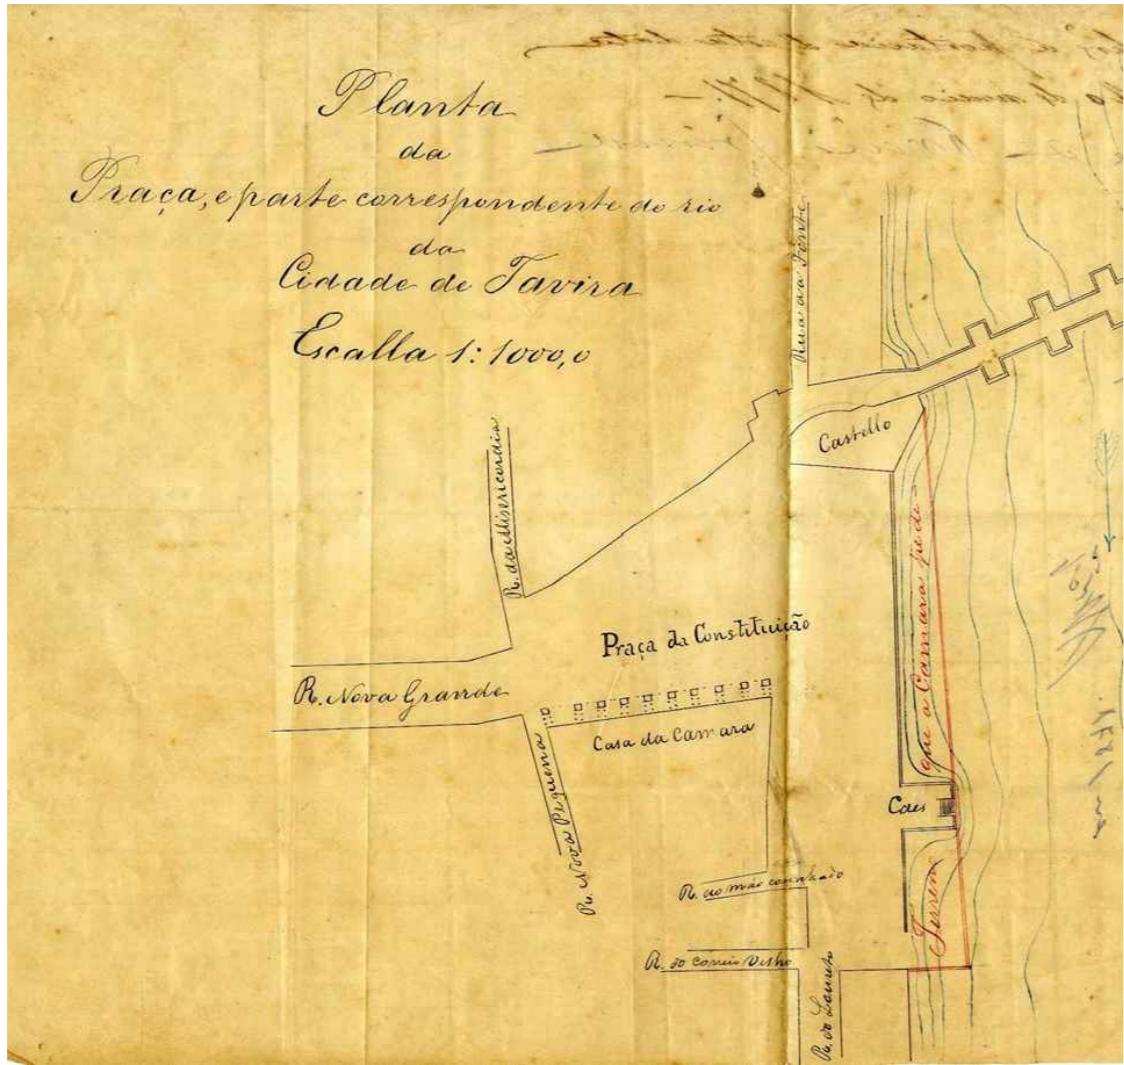 Planta
da
Praça, e parte correspondente do rio
da
Cidade de Tavira
Escalla 1:1000,0
Rua da Fonte
Castello
R. da Misericordia
Praça da Constituição
R. Nova Grande
Casa da Camara
R. Nova Pequena
Caes
Terreno que a Camara pede
R. do
R. do Correio Velho
R. do Loureto